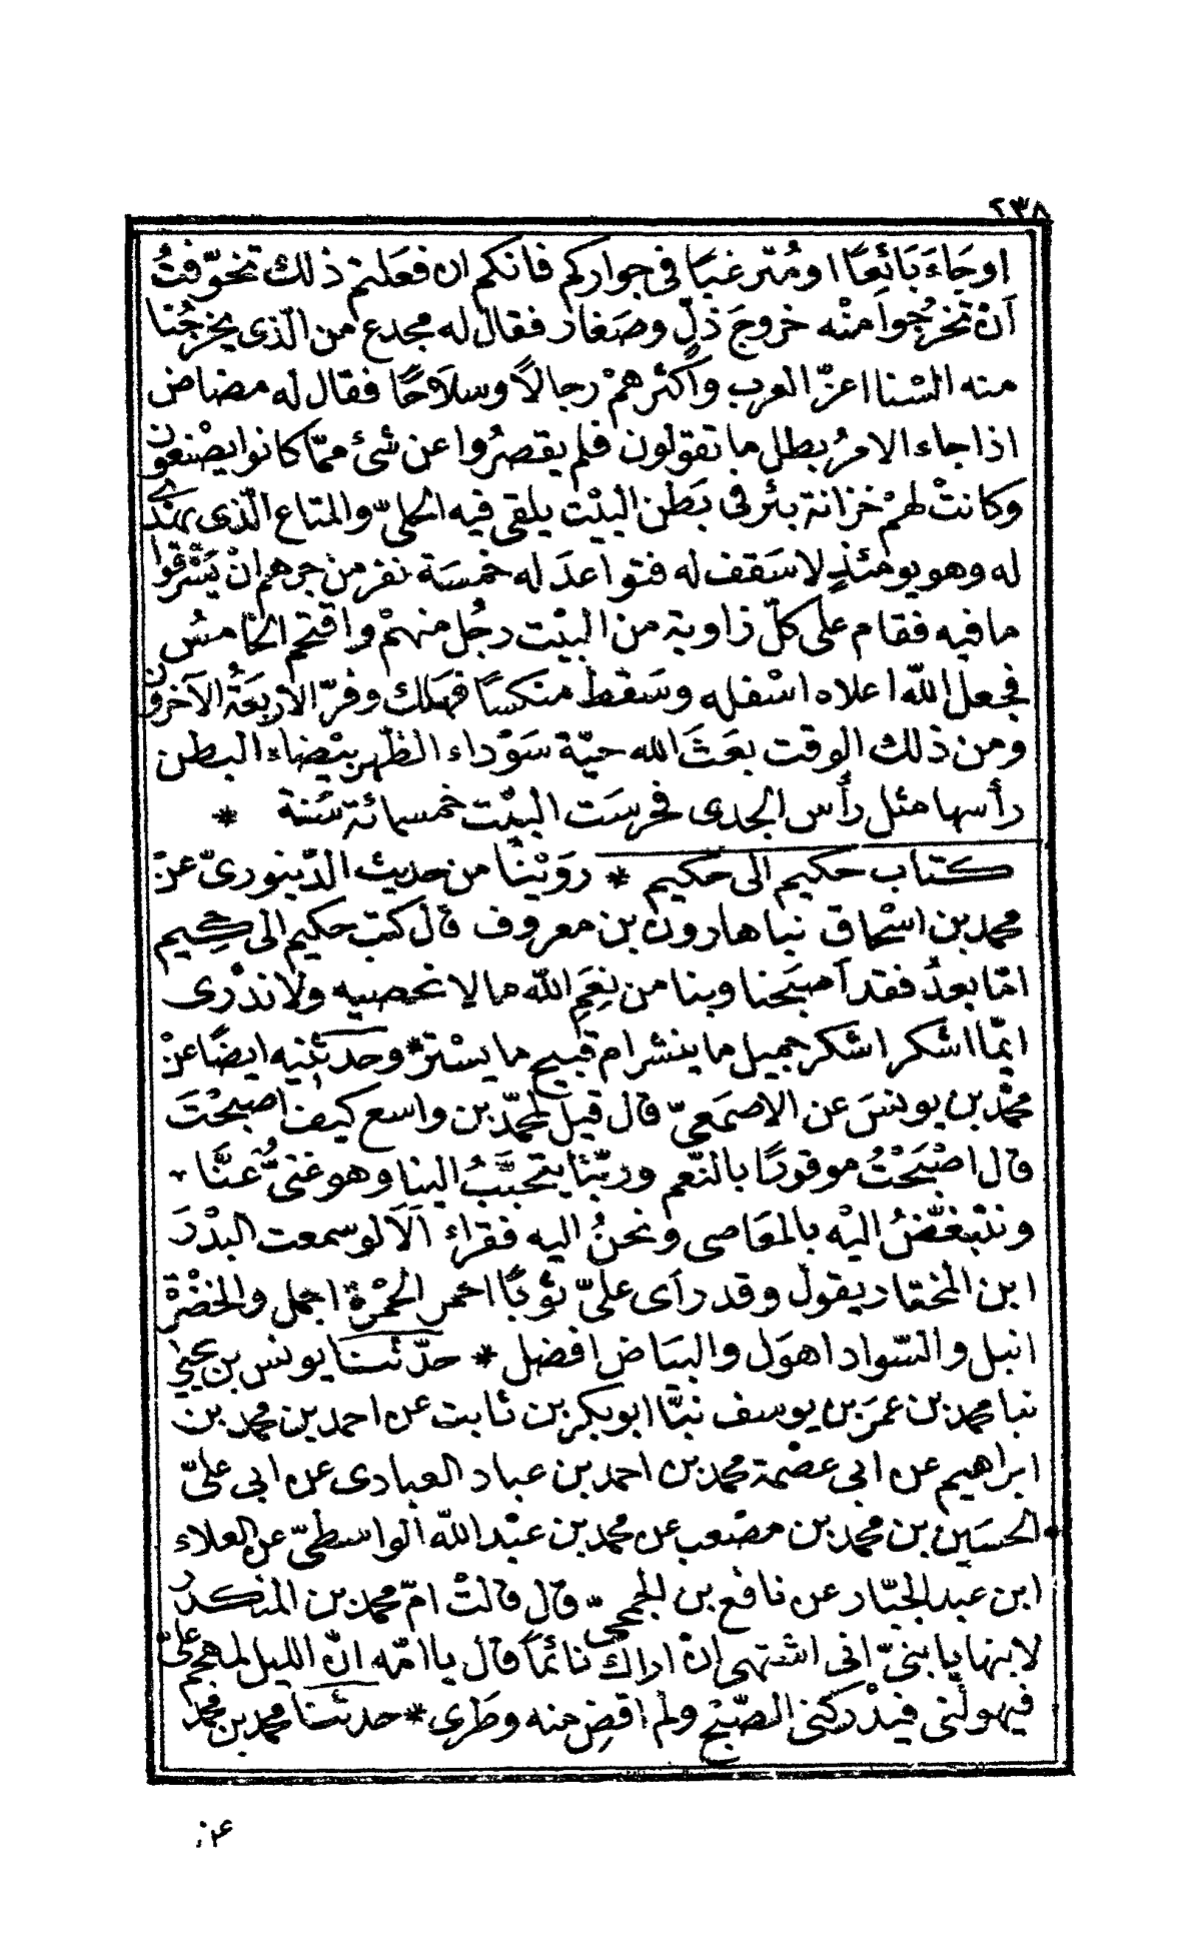 ٢٣٨
اوجَاءَ بَائِعًا او مُتّرغبًا فى جواركم فانكم ان فعَلتم ذلك تخوّفتُ
اَنْ تخرجُوا مِنْه خروجَ ذلٍّ وصَغار فقال له مجدع من الّذى يخرجُنا
منه السْنا اعزّ العرب وأكثرهمْ رجالًا وسلاَحًا فقال له مضاض
اذا جاء الامرُ بطل ما تقولون فلم يقصرُوا عن شئ ممّا كانوا يصْنعون
وكانتْ لهمْ خزانة بئر فى بَطن البيْت يلقى فيه الحلىّ والمتاع الّذى يهْدى
له وهو يومئذٍ لا سَقف له فتواعدَ له خمسَة نفر من جرهم انْ يَسْرقوا
ما فيه فقام على كلّ زاوية من البيْت رجُل منهمْ واقتحم الخامسُ
فجعل اللّه اعلاه اسْفله وسَقط منكسًا فهلك وفرّ الأربعَةُ الآخرون
ومن ذلك الوقت بعَثَ الله حيّة سَوْداء الظّهر بيْضاء البطن
رأسها مثل رأس الجدى فحرسَت البيْت خمسمائة سَنة *
كتاب حكيم الى حَكيم * روَيْنا من حديث الدّينورىّ عنْ
محمد بن اسْحاق نبا هارون بن معروف قال كتب حكيم الى حكِيم
امّا بعدُ فقد اَصبَحنا وبنا من نِعَمِ اللّه ما لا نحصيه ولا ندْرى
ايّما اشكر اشكر جميل ما ينشر ام قبيح ما يسْتر * وحدثنيه ايضًا عنْ
محمّد بن يونسَ عن الاصمَعىّ قال قيل لمحمّد بن واسع كيف اصبحْتَ
قال اصْبَحْتُ موقورًا بالنّعم وربّنا يتحَبَّبُ الينا وهو غنىٌّ عَنَّا
ونتبغّضُ اليْه بالمعَاصى ونحنُ اليه فقراء اَلَا لو سمعت البدْرَ
ابن المختار يقول وقد رآى علىّ ثوبًا احْمر الحمْرة اجمل والخضْرة
انبل والسّواد اهوَل والبيَاض افضل * حدّثنا يونس بن يحيىٰ
نبا محمد بن عمرَ بن يوسف نبّا ابو بكر بن ثابت عن احمد بن محمد بن
ابراهيم عن ابى عصْمة محمد بن احمد بن عباد العبادى عن ابى علىّ
الحسَين بن محمد بن مصْعب عن محمد بن عبْد اللّه الواسطىّ عن العلاء
ابن عبد الجبّار عن نافع بن الجمحىّ قال قالتْ امّ محمد بن المنكدر
لابنها يا بنىّ انى اشتهى انْ اراك نائمًا قال يا امّه انّ الليل لما هجم علىّ
فيهولنى فيدْركنى الصّبْح ولم اقضِ منه وطرى * حدثنا محمد بن محمد